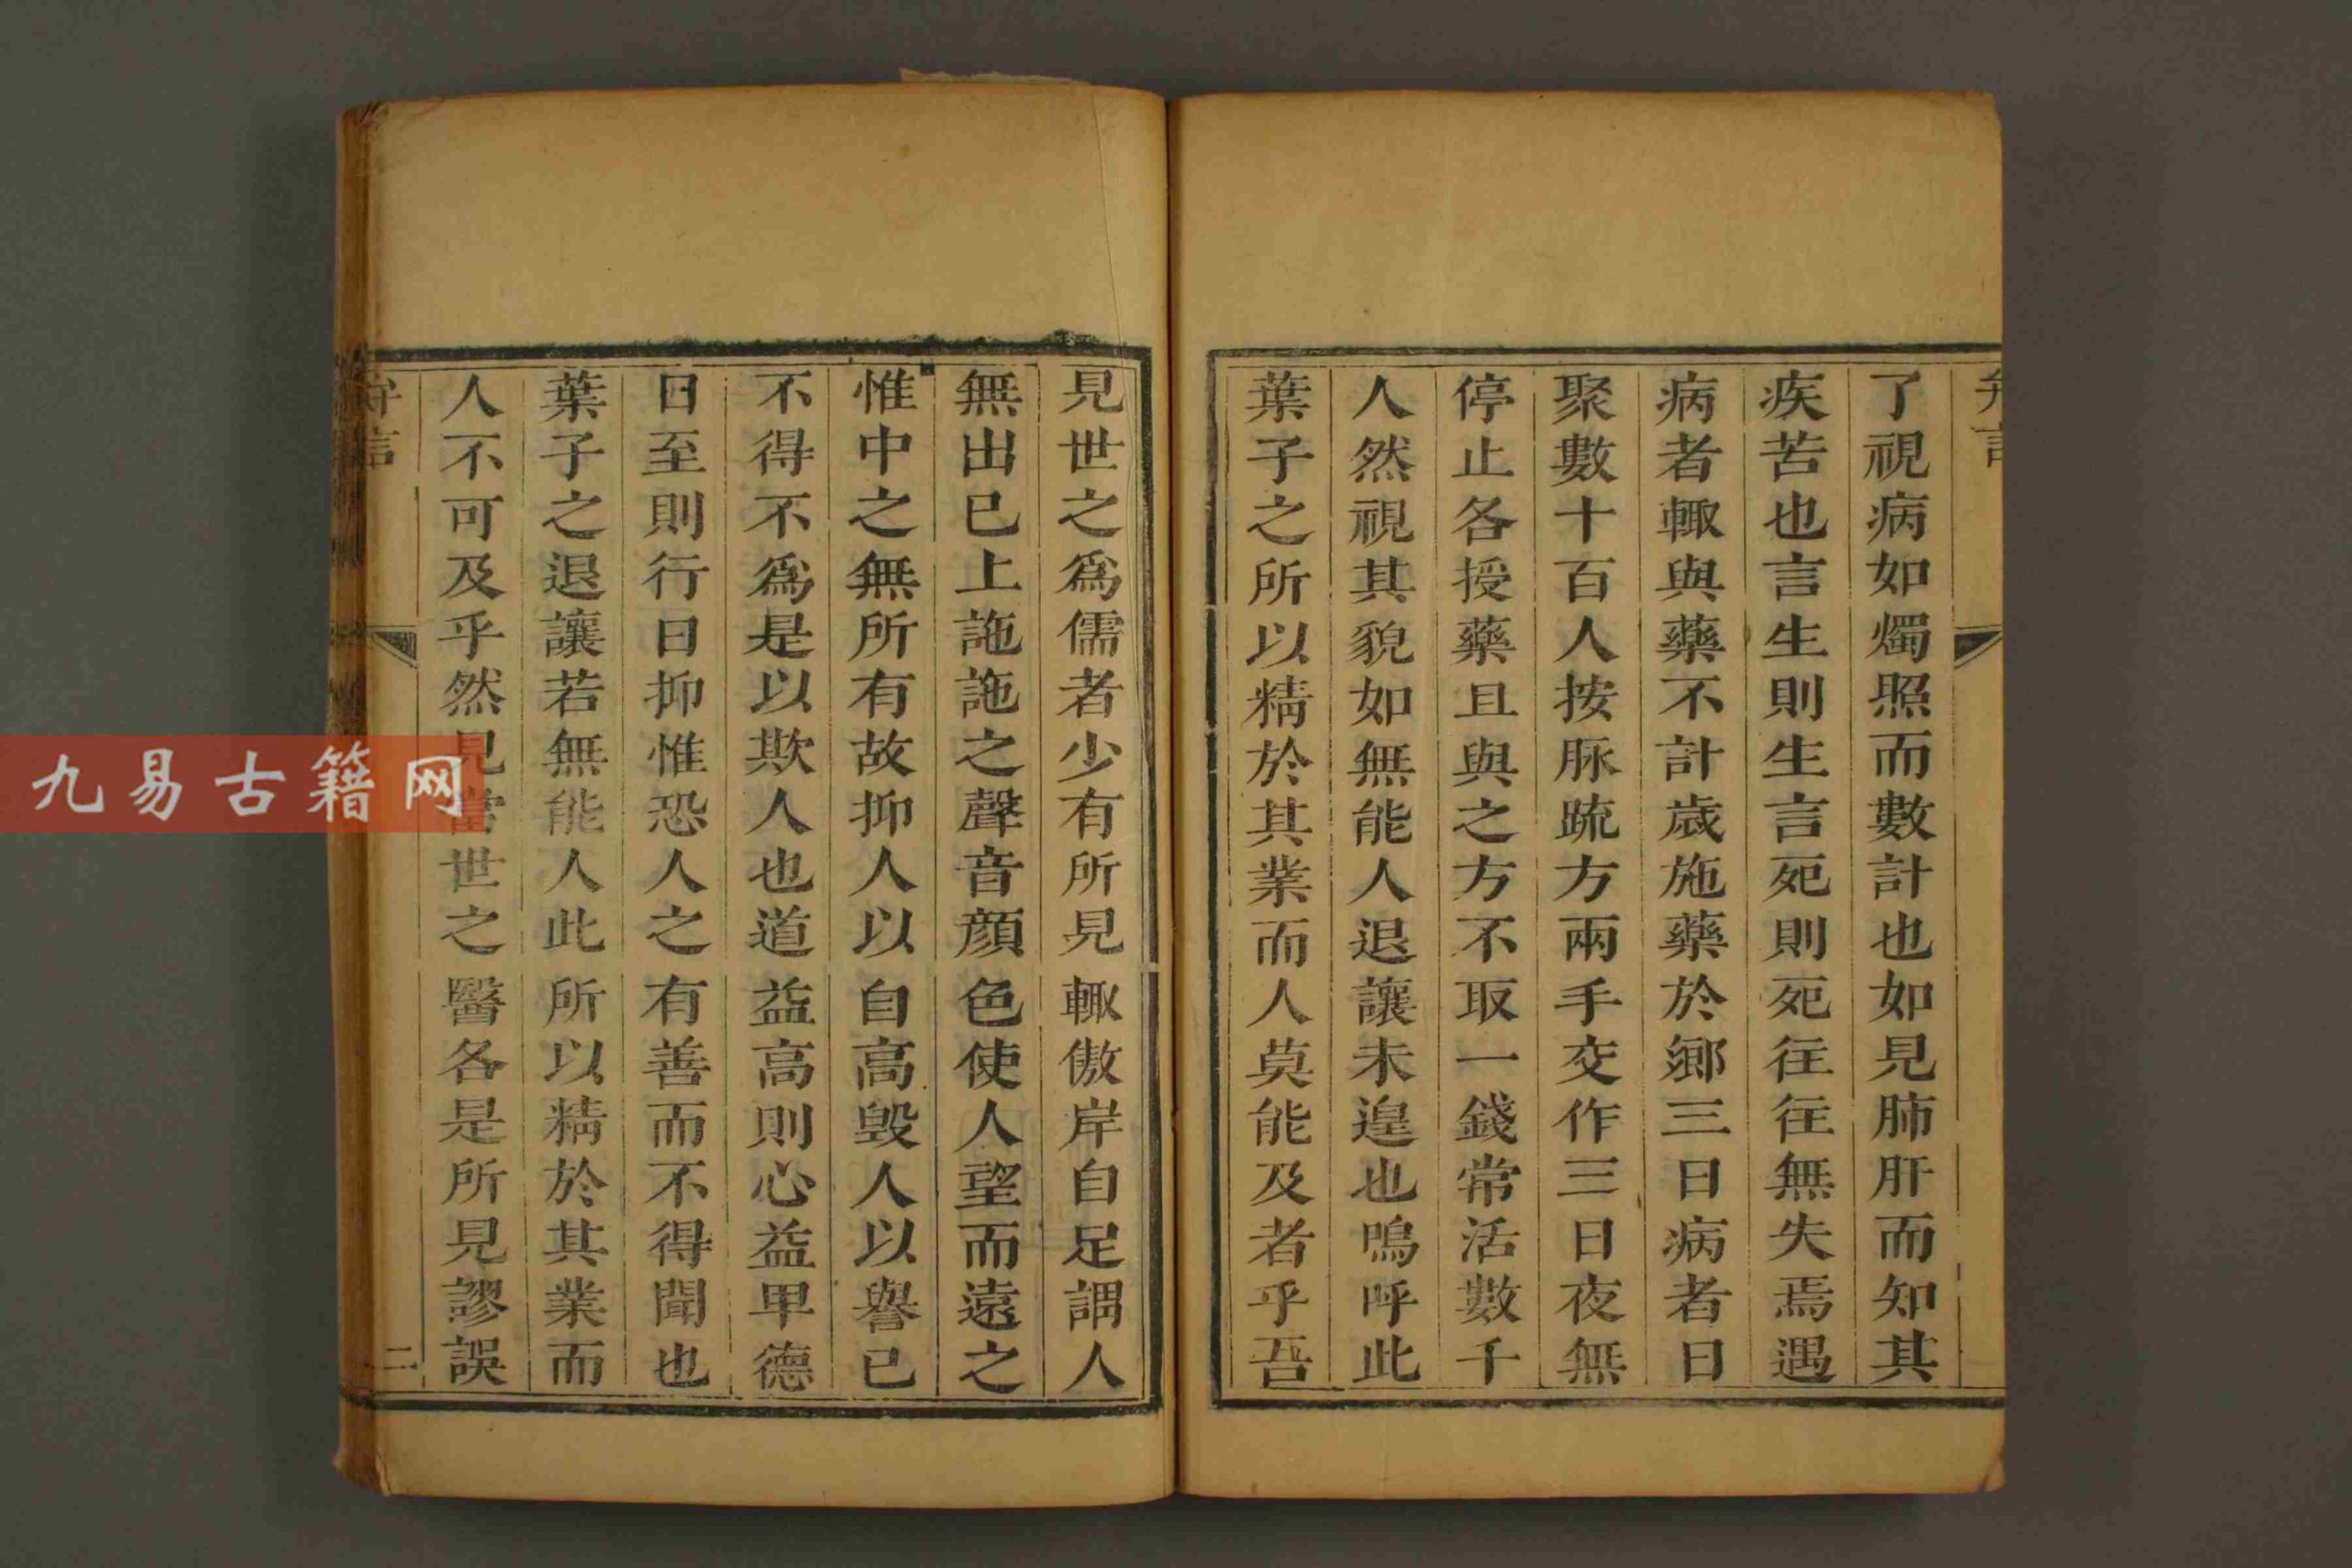 弁言
了視病如燭照而數計也如見肺肝而知其
疾苦也言生則生言死則死往往無失焉遇
病者輙與藥不計歲施藥於鄉三日病者日
聚數十百人按脈疏方兩手交作三日夜無
停止各授藥且與之方不取一錢常活數千
人然視其貌如無能人退讓未遑也嗚呼此
葉子之所以精於其業而人莫能及者乎吾
見世之爲儒者少有所見輙傲岸自足謂人
無出已上訑訑之聲音顏色使人望而遠之
惟中之無所有故抑人以自高毀人以譽已
不得不爲是以欺人也道益高則心益卑德
日至則行日抑惟恐人之有善而不得聞也
葉子之退讓若無能人此所以精於其業而
人不可及乎然見當世之醫各是所見謬誤
弁言
二
九易古籍网